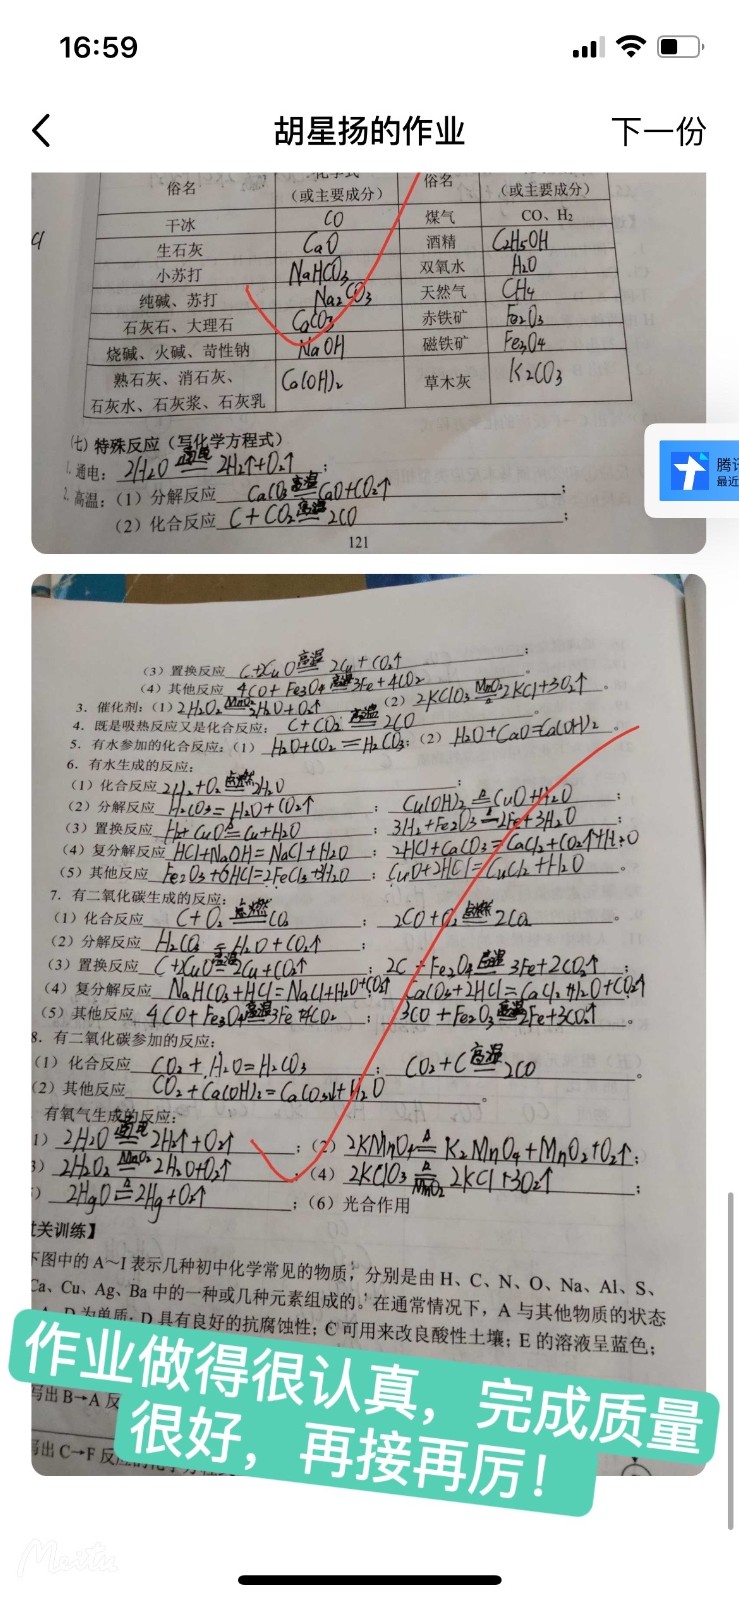 16:59
胡星扬的作业 下一份
俗名 （或主要成分） 俗名 （或主要成分）
干冰 CO 煤气 CO、H₂
生石灰 CaO 酒精 C₂H₅OH
小苏打 NaHCO₃ 双氧水 H₂O
纯碱、苏打 Na₂CO₃ 天然气 CH₄
石灰石、大理石 CaCO₃ 赤铁矿 Fe₂O₃
烧碱、火碱、苛性钠 NaOH 磁铁矿 Fe₃O₄
熟石灰、消石灰、
石灰水、石灰浆、石灰乳 Ca(OH)₂ 草木灰 K₂CO₃
㈦ 特殊反应（写化学方程式）
1. 通电：2H₂O 通电 2H₂↑+O₂↑；
2. 高温：（1）分解反应 CaCO₃ 高温 CaO+CO₂↑；
（2）化合反应 C+CO₂ 高温 2CO；
121
腾讯
最近
（3）置换反应 C+2CuO 高温 2Cu+CO₂↑；
（4）其他反应 4CO+Fe₃O₄ 高温 3Fe+4CO₂。
3. 催化剂：（1）2H₂O₂ MnO₂ 2H₂O+O₂↑ （2）2KClO₃ MnO₂ 2KCl+3O₂↑。
4. 既是吸热反应又是化合反应：C+CO₂ 高温 2CO。
5. 有水参加的化合反应：（1）H₂O+CO₂=H₂CO₃；（2）H₂O+CaO=Ca(OH)₂。
6. 有水生成的反应：
（1）化合反应 2H₂+O₂ 点燃 2H₂O；
（2）分解反应 H₂CO₃=H₂O+CO₂↑；Cu(OH)₂ △ CuO+H₂O；
（3）置换反应 H₂+CuO △ Cu+H₂O；3H₂+Fe₂O₃ △ 2Fe+3H₂O；
（4）复分解反应 HCl+NaOH=NaCl+H₂O；2HCl+CaCO₃=CaCl₂+CO₂↑+H₂O
（5）其他反应 Fe₂O₃+6HCl=2FeCl₃+3H₂O；CuO+2HCl=CuCl₂+H₂O。
7. 有二氧化碳生成的反应：
（1）化合反应 C+O₂ 点燃 CO₂；2CO+O₂ 点燃 2CO₂。
（2）分解反应 H₂CO₃=H₂O+CO₂↑
（3）置换反应 C+2CuO 高温 2Cu+CO₂↑；2C+Fe₃O₄ 高温 3Fe+2CO₂↑；
（4）复分解反应 NaHCO₃+HCl=NaCl+H₂O+CO₂↑ CaCO₃+2HCl=CaCl₂+H₂O+CO₂↑
（5）其他反应 4CO+Fe₃O₄ 高温 3Fe+4CO₂；3CO+Fe₂O₃ 高温 2Fe+3CO₂↑。
8. 有二氧化碳参加的反应：
（1）化合反应 CO₂+H₂O=H₂CO₃；CO₂+C 高温 2CO。
（2）其他反应 CO₂+Ca(OH)₂=CaCO₃↓+H₂O。
有氧气生成的反应：
1）2H₂O 通电 2H₂↑+O₂↑；（2）2KMnO₄ △ K₂MnO₄+MnO₂+O₂↑；
3）2H₂O₂ MnO₂ 2H₂O+O₂↑；（4）2KClO₃ △ MnO₂ 2KCl+3O₂↑；
）2HgO △ 2Hg+O₂↑；（6）光合作用
关训练】
下图中的 A～I 表示几种初中化学常见的物质，分别是由 H、C、N、O、Na、Al、S、
Ca、Cu、Ag、Ba 中的一种或几种元素组成的。在通常情况下，A 与其他物质的状态
A、D 为单质，D 具有良好的抗腐蚀性；C 可用来改良酸性土壤；E 的溶液呈蓝色；
写出 B→A 反
写出 C→F 反
作业做得很认真，完成质量
很好，再接再厉！
Meitu